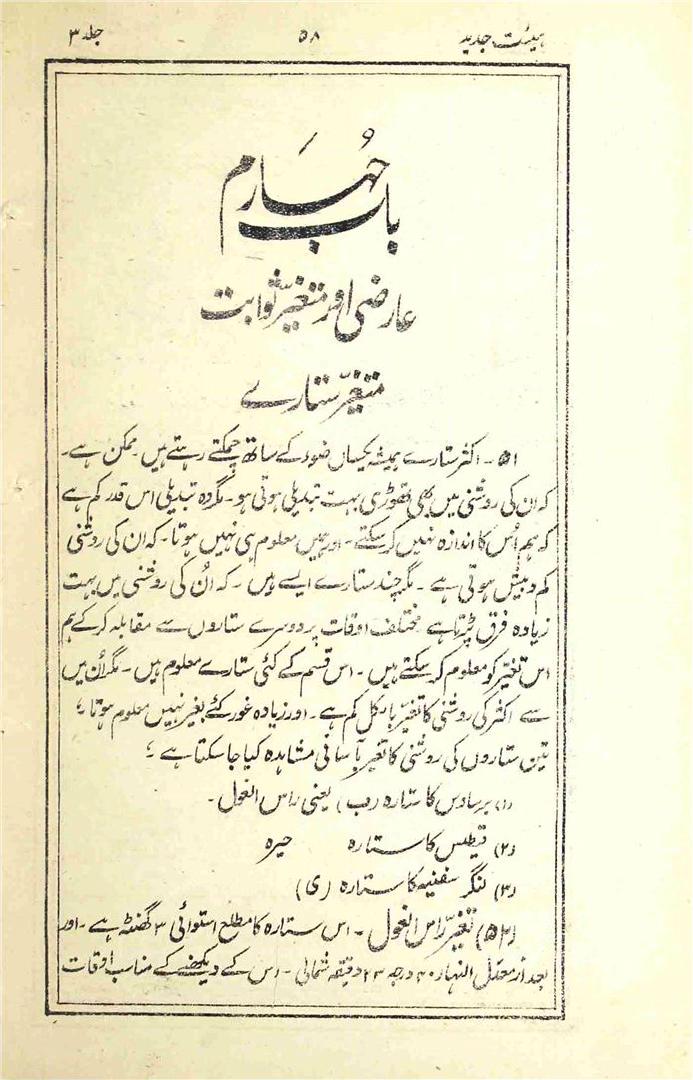 ہیئت جدید ۵۸ جلد ۳
باب چہارم
عارضی اور متغیّر ثوابت
متغیّر ستارے
۵۱ - اکثر ستارے ہمیشہ یکساں ضوء کے ساتھ چمکتے رہتے ہیں۔ ممکن ہے۔
کہ ان کی روشنی میں بھی تھوڑی بہت تبدیلی ہوتی ہو۔ مگر وہ تبدیلی اس قدر کم ہے
کہ ہم اُس کا اندازہ نہیں کر سکتے۔ اور ہمیں معلوم ہی نہیں ہوتا۔ کہ ان کی روشنی
کم و بیش ہوتی ہے۔ مگر چند ستارے ایسے ہیں۔ کہ اُن کی روشنی میں بہت
زیادہ فرق پڑتا ہے مختلف اوقات پر دوسرے ستاروں سے مقابلہ کر کے ہم
اس تغیّر کو معلوم کر سکتے ہیں۔ اس قسم کے کئی ستارے معلوم ہیں۔ مگر اُن میں
سے اکثر کی روشنی کا تغیّر بالکل کم ہے۔ اور زیادہ غور کئے بغیر نہیں معلوم ہوتا؛
تین ستاروں کی روشنی کا تغیر بآسانی مشاہدہ کیا جا سکتا ہے؛
(۱) برساوس کا ستارہ (ب) یعنی راس الغول۔
(۲) قیطس کا ستارہ حیرہ
(۳) لنگر سفینہ کا ستارہ (ی)
(۵۲) تغیّر راس الغول۔ اس ستارہ کا مطلع استوائی ۳ گھنٹہ ہے۔ اور
بعد از معدل النہار ۴۰ درجہ ۲۳ دقیقہ شمالی۔ اس کے دیکھنے کے مناسب اوقات